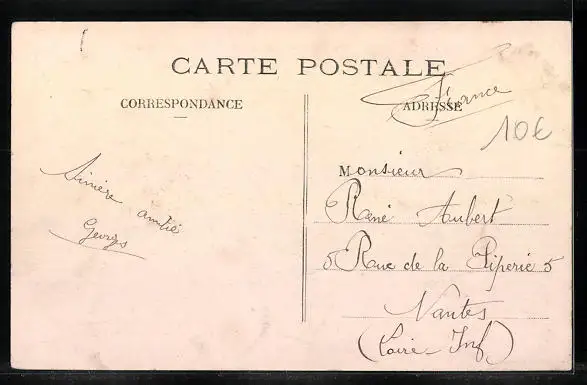 CARTE POSTALE
CORRESPONDANCE
Sincère amitié
Georges
ADRESSE
France
10€
Monsieur
René Aubert
5 Rue de la Piperie 5
Nantes
(Loire Inf)